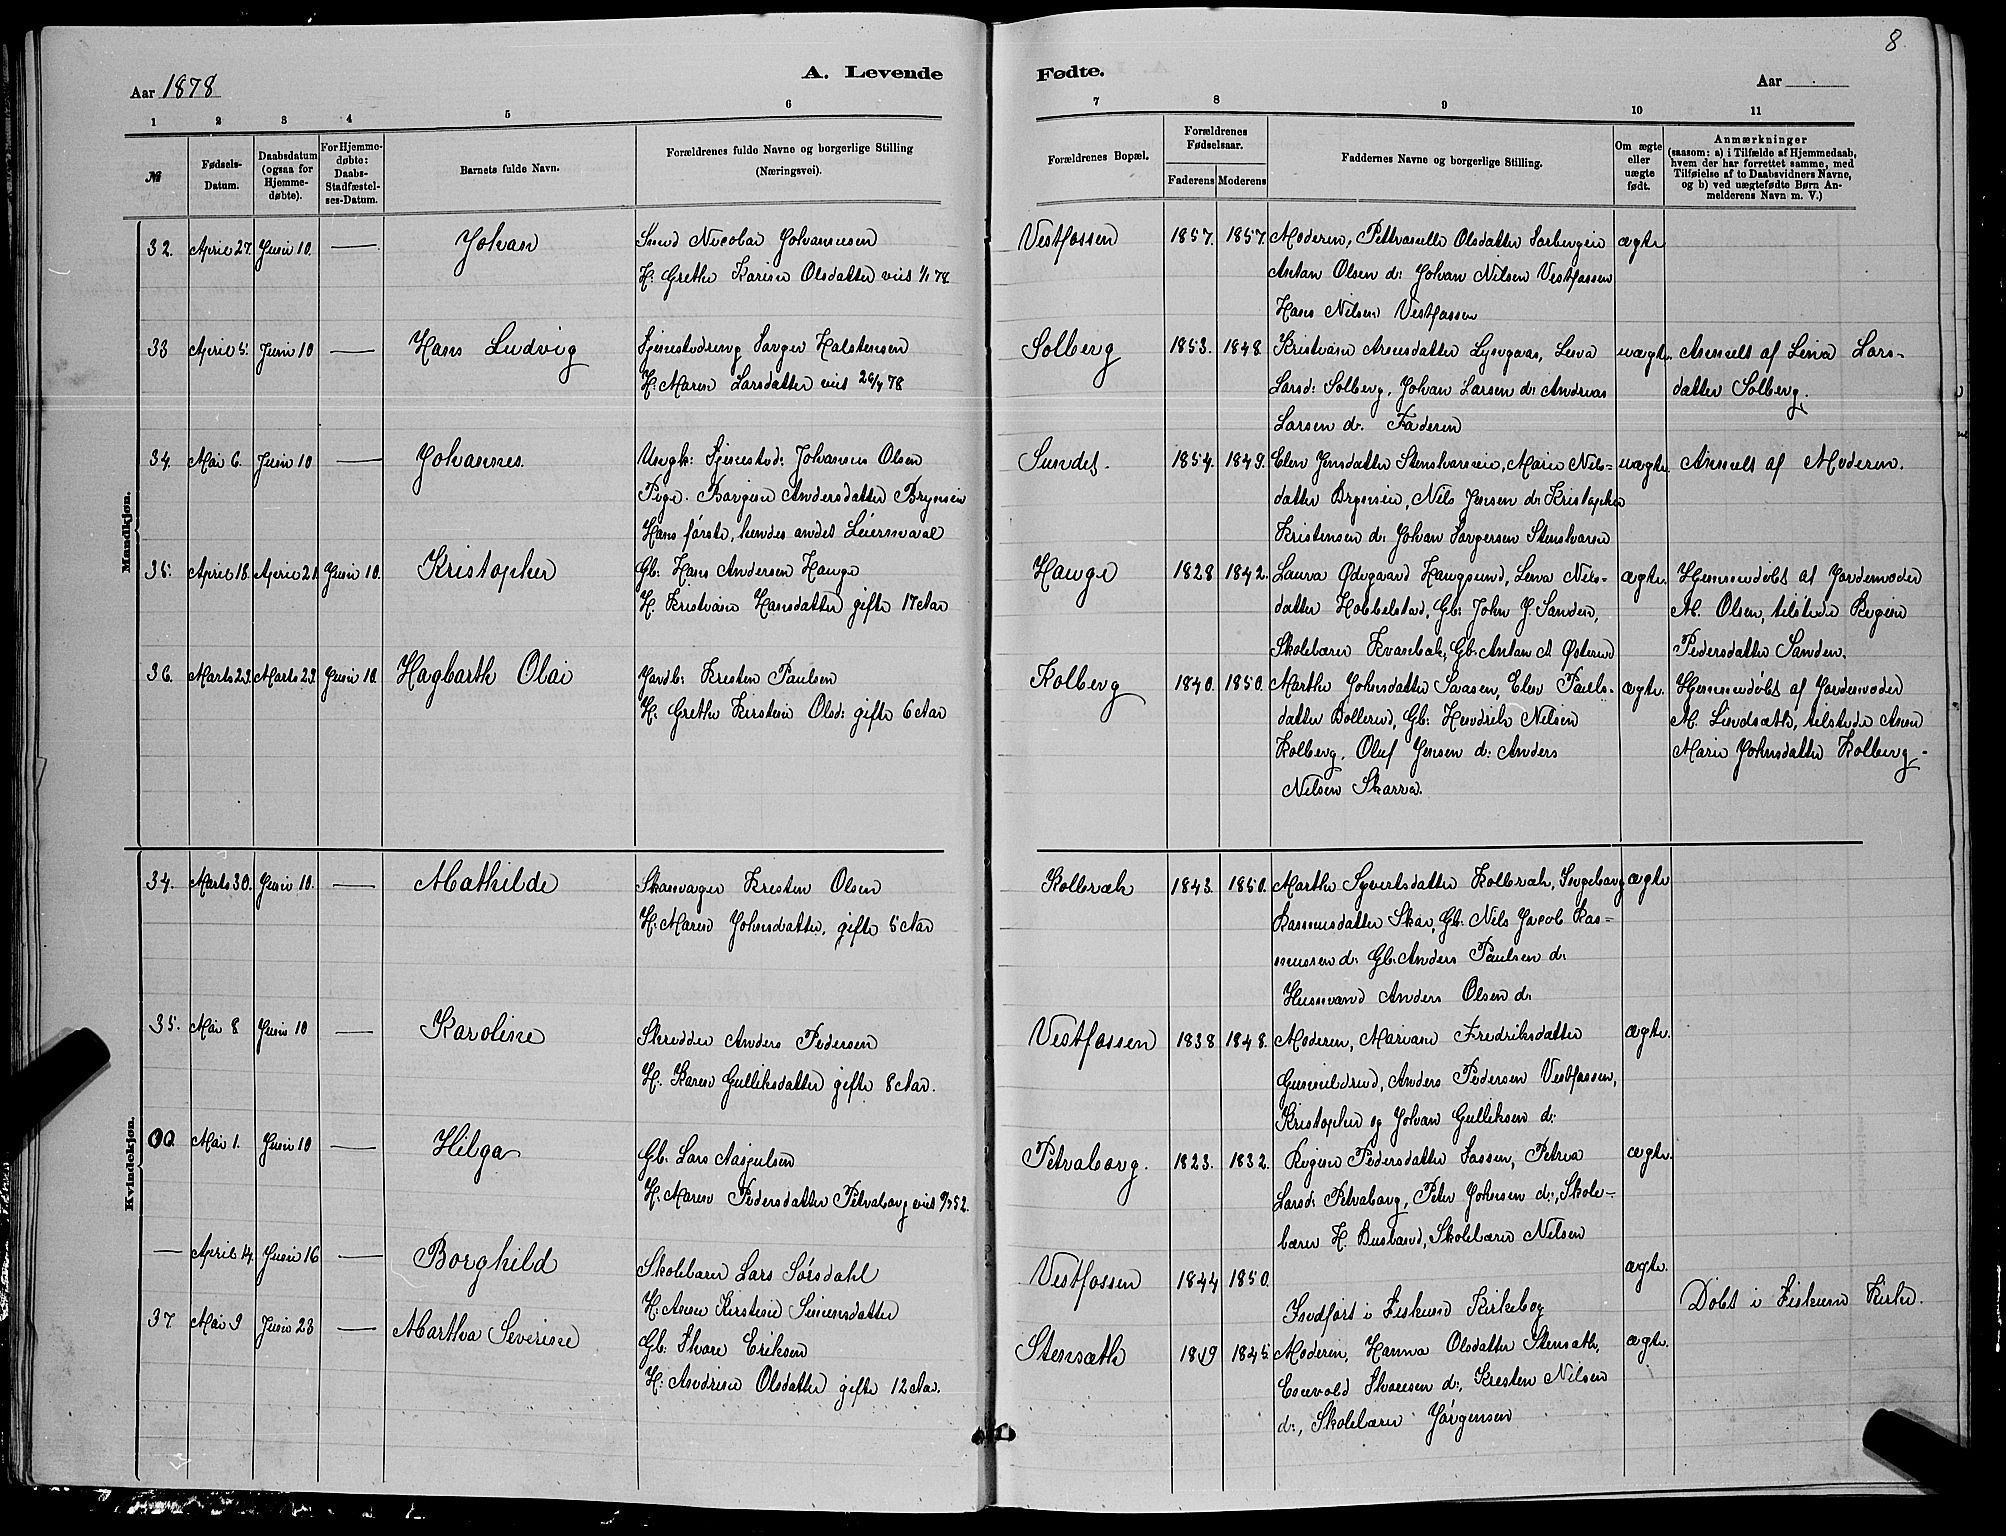 8.
A. Levende Fødte.
Aar 1878 Aar
1 2 3 4 5 6 7 8 9 10 11
№
Fødsels-Datum.
Daabsdatum (ogsaa for Hjemmedøbte).
For Hjemmedøbte: Daabs-Stadfæstelses-Datum.
Barnets fulde Navn.
Forældrenes fulde Navne og borgerlige Stilling (Næringsvei).
Forældrenes Bopæl.
Forældrenes Fødselsaar.
Faderens Moderens
Faddernes Navne og borgerlige Stilling.
Om ægte eller uægte født.
Anmærkninger
(saasom: a) i Tilfælde af Hjemmedaab,
hvem der har forrettet samme, med
Tilføielse af to Daabsvidners Navne,
og b) ved uægtefødte Børn An-
melderens Navn m. V.)
Mandkjøn.
32. April 27. Juni 10. — Johan
Nicolai Johannesen
H. Grethe Karine Olsdatter viet 1/1 78
Vestfossen 1857. 1857.
Moderen, Olsdatter
Anton Olsen d: Johan Nilsen Vestfossen
Hans Nilsen Vestfossen
ægte
33 April 5. Juni 10 — Hans Ludvig
Tjenestedreng Halstensen
H: Maren Larsdatter viet 26/4 78
Solberg 1853. 1848.
Kristiane Arnesdatter Lena
Larsd: Solberg, Johan Larsen d: Andreas
Larsen d. Faderen
uægte.
Anmeldt af Lena Lars-
datter Solberg.
34. Mai 6. Juni 10 — Johannes.
Ungk: Tjenested: Johannes Olsen
Pige. Andersdatter
Hans første, hendes andet Leiermaal
Sundet. 1854. 1849.
Elen Jensdatter Marie Nils-
datter Nils Jensen d: Kristopher
Kristensen d: Johan
uægte.
Anmeldt af Moderen.
35. April 18. April 21. Juni 10. Kristopher
Gb: Hans Andersen Hauge
H. Kristiane Hansdatter gifte 17 Aar
Hauge 1828 1842.
Laura Ødegaard Haugsund, Lena Nils-
datter Hobbelstad, Gb: John J. Sanden,
Skolelærer Gb: Anton A.
ægte.
Hjemmedøbt af Jordemoder
M. Olsen, tilstede Regine
Pedersdatter Sanden.
36. Marts 23. Marts 23. Juni 10. Hagbarth Olai
Jordb: Kresten Paulsen
H: Grethe Kirstine Olsd: gifte 6 Aar
Kolberg 1840. 1850.
Marthe Johnsdatter Elen Pauls-
datter Bollerud, Gb: Hendrik Nilsen
Kolberg. Oluf Jensen d: Anders
Nilsen Skarra.
ægte.
Hjemmedøbt af Jordemoder
M. Lindsæth, tilstede Anne
Marie Johnsdatter Kolberg
Kvindekjøn.
34. Marts 30. Juni 10. — Mathilde
Skomager Kresten Olsen
H: Maren Johnsdatter, gifte 5 Aar
Kolbræk 1843. 1850.
Marthe Syvertsdatter Kolbræk, Ingeborg
Rasmusdatter Skar, Gb: Nils Jacob Ras-
mussen d: Gb: Anders Paulsen d:
Husmand Anders Olsen d:
ægte
35. Mai 8 Juni 10 — Karoline
Skredder Anders Pedersen
H. Karen Gulliksdatter gifte 8 Aar.
Vestfossen 1838 1848.
Moderen, Mariane Fredriksdatter
Gunnildrud, Anders Pedersen Vestfossen,
Kristopher og Johan Gulliksen d:
ægte.
Mai 1. Juni 10 — Helga
Gb: Lars
H: Maren Pedersdatter Petraborg viet
Petraborg. 1823. 1832.
Regine Pedersdatter Petrea
Larsd: Petraborg, Peter Johnsen d:, Skole-
lærer H. Skolelærer Nilsen
ægte.
— April 14. Juni 16 — Borghild
Skolelærer Lars Sørsdahl
H: Anne Kirstine Simensdatter
Vestfossen 1844 1850.
Indført i Fiskum Kirkebog
ægte.
Døbt i Fiskum Kirke.
37 Mai 9 Juni 23 — Marthea Severine
Gb: Thore Eriksen
H: Andrine Olsdatter gifte 12 Aar.
Stensæth 1819 1845
Moderen, Hanna Olsdatter Stensæth,
Enevold Thoresen d:, Kresten Nilsen
d:, Skolelærer Jörgensen
ægte.